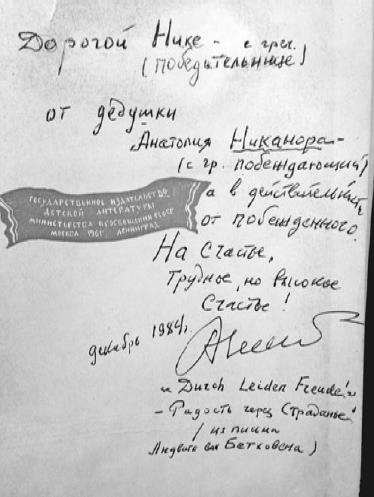 Дорогой Нике - с греч.
(победительнице)
от дедушки
Анатолия Никанора -
(с гр. побеждающий)
а в действительн.
от побежденного.
ГОСУДАРСТВЕННОЕ ИЗДАТЕЛЬСТВО
ДЕТСКОЙ ЛИТЕРАТУРЫ
МИНИСТЕРСТВА ПРОСВЕЩЕНИЯ РСФСР
МОСКВА 1961 ЛЕНИНГРАД
На Счастье,
Трудное, но высокое
Счастье!
декабрь 1984г.
"Durch Leiden Freude!"
- Радость через Страданье!
(из письма
Людвига ван Бетховена)